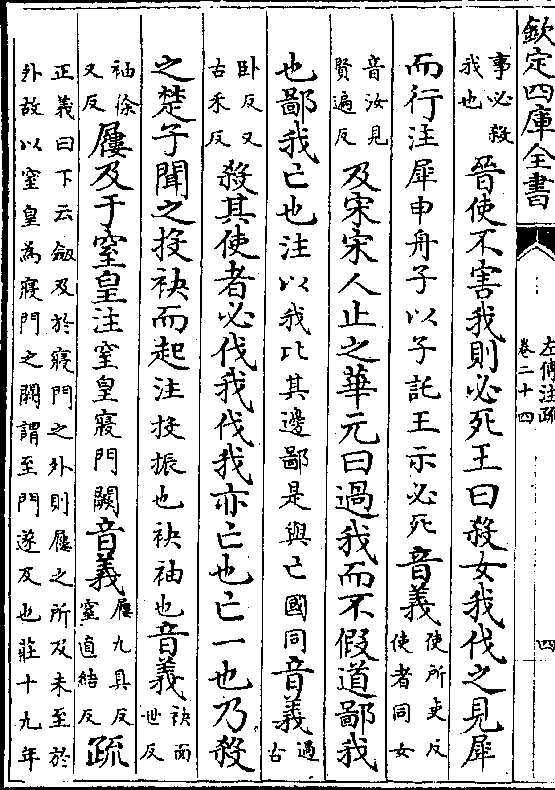 欽定四庫全書
左傳注疏
卷二十四
四
事必殺我也晉使不害我則必死王曰殺女我伐之見犀
而行注犀申舟子以子託王示必死音義使所吏反使者同女
音汝見賢遍反及宋宋人止之華元曰過我而不假道鄙我
也鄙我亡也注以我比其邊鄙是與亡國同音義過古
卧反又古禾反殺其使者必伐我伐我亦亡也亡一也乃殺
之楚子聞之投袂而起注投振也袂袖也音義袂面世反
袖徐又反屨及于窒皇注窒皇寢門闕音義屨九具反窒直結反疏
正義曰下云劒及於寢門之外則屨之所及未至於
外故以窒皇為寢門之闕謂至門遂及也莊十九年